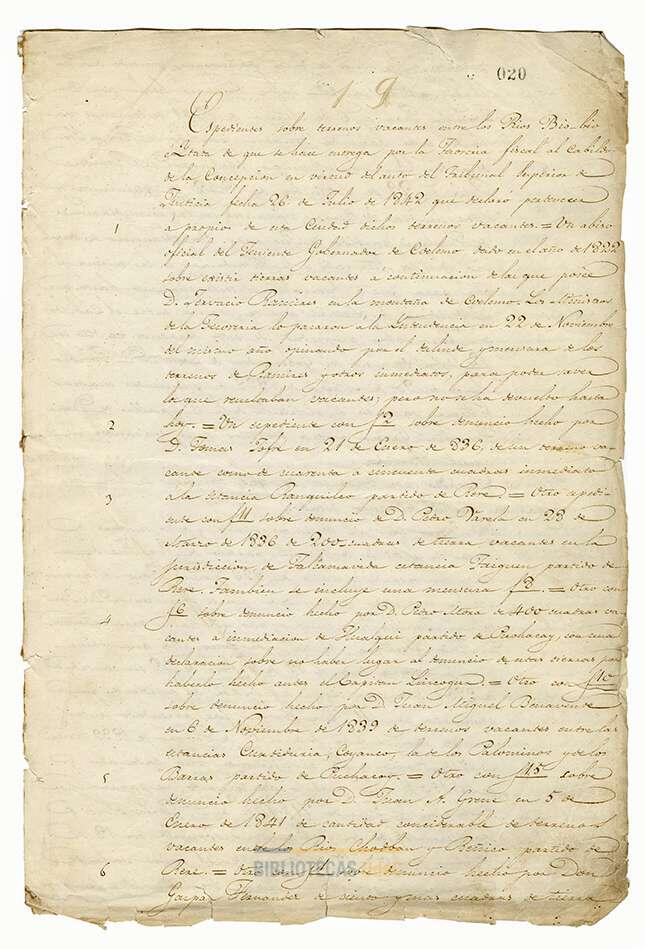 020
19
Espedientes sobre terrenos vacantes entre los Rios Bio-bio
é Itata de que se hace entrega por la Tesoreria fiscal al Cabildo
de la Concepcion en virtud del auto del Tribunal Superior de
Justicia fecha 26 de Julio de 1842 que declaró pertenecer
1 á propios de esta Ciudad dichos terrenos vacantes. = Un abiso
oficial del Teniente Gobernador de Coelemo dado en el año de 1822
sobre existir tierras vacantes á continuacion de las que posée
D. Gervacio Ramires en la montaña de Coelemo. Los Ministros
de la Tesoreria lo pasaron á la Intendencia en 22 de Noviembre
del mismo año opinando por el deslinde y mensura de los
terrenos de Ramires y otros inmediatos, para poder saver
lo que resultaban vacantes; pero no se ha devuelto hasta
2 hoy. = Un espediente con f 2 sobre denuncio hecho por
D. Tomas Jofré en 21 de Enero de 836, de un terreno va-
cante como de cuarenta a cincuenta cuadras inmediato
3 a la estancia Ranquilco partido de Rere. = Otro espedi-
ente con f 11 sobre denuncio de D. Pedro Varela en 23 de
Marzo de 1836 de 200 cuadras de tierra vacantes en la
jurisdiccion de Talcamavida estancia partido de
Rere. Tambien se incluye una mensura f 3. = Otro con
4 f 6 sobre denuncio hecho por D. Pedro Mora de 400 cuadras va-
cantes a inmediacion de Hualqui partido de Puchacay, con una
declaracion sobre no haber lugar al denuncio de estas tierras por
haberlo hecho antes el Capitan Lincogur. = Otro con f 10
sobre denuncio hecho por D. Juan Miguel Benavente
en 6 de Noviembre de 1839 de terrenos vacantes entre las
estancias Curtiduria, Coyanco, la de los Palominos y de los
5 Barras partido de Puchacay. = Otro con f 15 sobre
denuncio hecho por D. Juan A. Grene en 5 de
Enero de 1841 de cantidad considerable de terrenos
vacantes entre los Rios y partido de
6 Rere. = Otro con sobre denuncio hecho por Don
Gaspar Fernandez de ciento y mas cuadras de tierra
BIBLIOTECAS